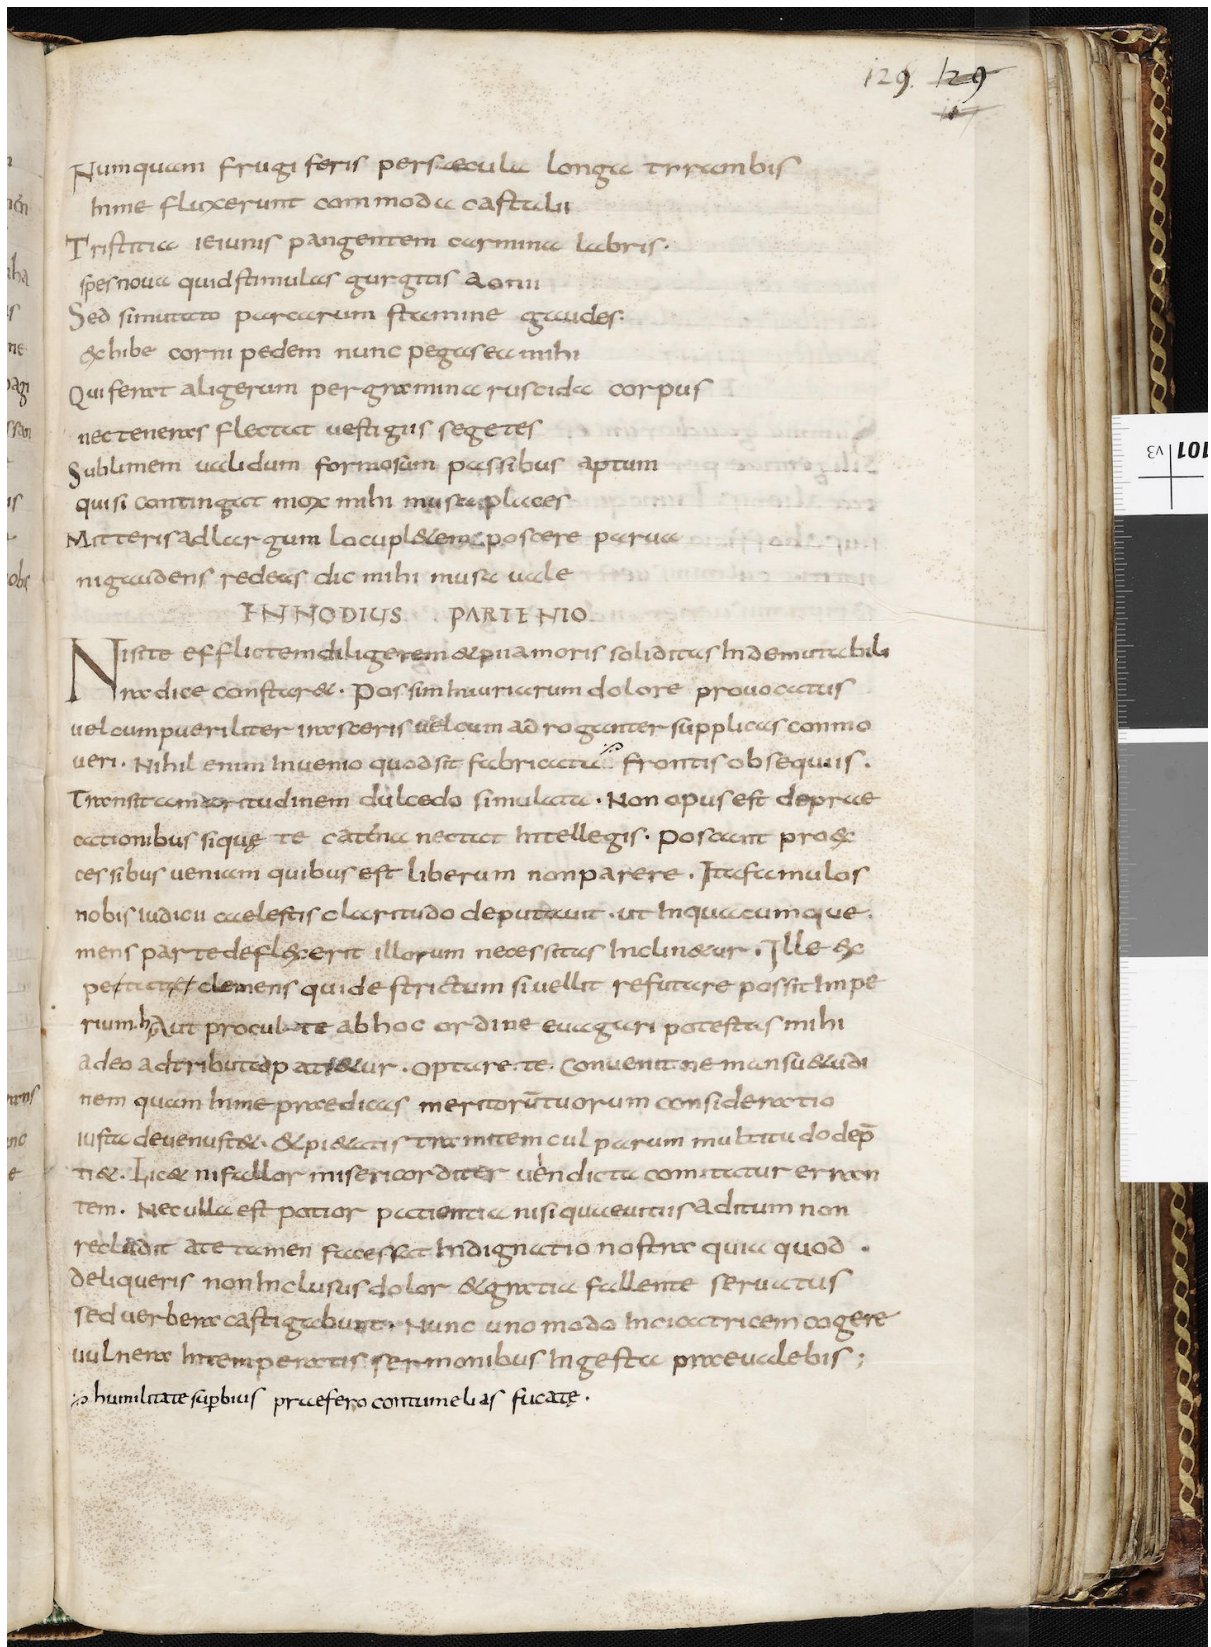 129. 129
Numquam frugiferis persaecula longa trrambis
hinie fluxerunt commoda castalii
Tristitia ieiunis pangentem carmina labris.
spes noua quid stimulas gurgitis aonii
Sed si mutato parcarum stamine gaudes.
& hibe corni pedem nunc pegasea mihi
Qui ferat aligerum per gramina ruscida corpus
nec teneras flectat uestigiis segetes
Sublimem ualidum formosum passibus aptum
qui si contingat mox mihi musa places
Mitteris ad largum locupl&em poscere parua
ni gaudens redeas dic mihi musa uale
INNODIUS PARTENIO
Niste efflictem diligerem & pii amoris soliditas Indemutabili
radice constar&. Possim Iniuriarum dolore prouocatus
uel cum pueriliter irasceris uel cum adroganter supplicas conmo
ueri. Nihil enim Inuenio quod sit fabricata frontis obsequiis.
Transit amaritudinem dulcedo simulata. Non opus est deprae
cationibus si quę te catena nectat Intellegis. Poscant pro &
cessibus ueniam quibus est liberum non parere. Ita famulos
nobis iudicii caelestis claritudo deputauit. ut In quacumque
mens parte defl&erit illorum necessitas Inclin&ur. Ille &
pe clemens qui destrictum si uellit refutare possit Impe
rium. h Aut procul te ab hoc ordine euagari potestas mihi
a deo adtributa pati&ur. Optare te. Conuenit ne mansu&udi
nem quam In me praedicas meritorū tuorum consideratio
iusta deuenust&. & pi&atis tramitem culparum multitudo dep̄
ti&. Lic& ni fallor misericorditer uendicta comitatur erran
tem. Nec ulla est potior patientia nisi quae uitiis aditum non
recludit a te tamen facessat Indignatio nostra quia quod
deliqueris non Inclusus dolor & gratia fallente seruatus
sed uerbera castigabunt. Nunc uno modo In cicatricem cogere
uulnera Intemperatis sermonibus Ingesta praeualebis;
humilitate supbius praefero contumelias fucatę.